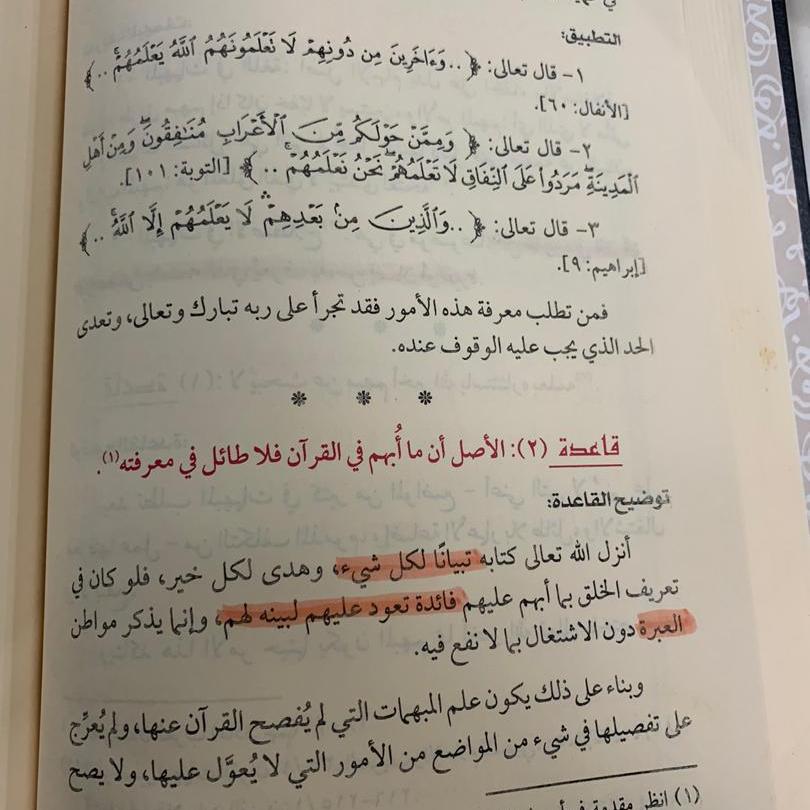 التطبيق:
١- قال تعالى: ﴿ ..وَءَاخَرِينَ مِن دُونِهِمْ لَا تَعْلَمُونَهُمُ ٱللَّهُ يَعْلَمُهُمْ ۚ.. ﴾
[الأنفال: ٦٠].
٢- قال تعالى: ﴿ وَمِمَّنْ حَوْلَكُم مِّنَ ٱلْأَعْرَابِ مُنَٰفِقُونَ ۖ وَمِنْ أَهْلِ
ٱلْمَدِينَةِ ۖ مَرَدُوا۟ عَلَى ٱلنِّفَاقِ لَا تَعْلَمُهُمْ ۖ نَحْنُ نَعْلَمُهُمْ ۚ .. ﴾ [التوبة: ١٠١].
٣- قال تعالى: ﴿ ..وَٱلَّذِينَ مِنۢ بَعْدِهِمْ ۛ لَا يَعْلَمُهُمْ إِلَّا ٱللَّهُ ۚ .. ﴾
[إبراهيم: ٩].
فمن تطلب معرفة هذه الأمور فقد تجرأ على ربه تبارك وتعالى، وتعدى
الحد الذي يجب عليه الوقوف عنده.
قاعدة (٢): الأصل أن ما أُبهم في القرآن فلا طائل في معرفته(١).
توضيح القاعدة:
أنزل الله تعالى كتابه تبيانًا لكل شيء، وهدى لكل خير، فلو كان في
تعريف الخلق بما أبهم عليهم فائدة تعود عليهم لبينه لهم، وإنما يذكر مواطن
العبرة دون الاشتغال بما لا نفع فيه.
وبناء على ذلك يكون علم المبهمات التي لم يُفصح القرآن عنها، ولم يُعرِّج
على تفصيلها في شيء من المواضع من الأمور التي لا يُعوَّل عليها، ولا يصح
(١) انظر مقدمة في